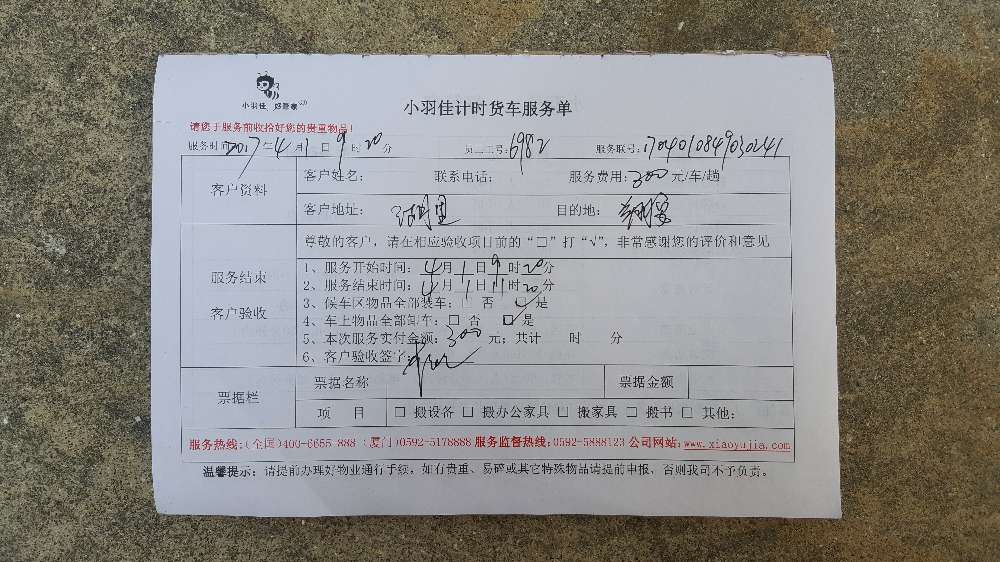 小羽佳 好管家
小羽佳计时货车服务单
请您于服务前收拾好您的贵重物品！
服务时间：2017年4月1日9时20分 员工工号：6982 服务联号：1704010849030241
客户资料
客户姓名： 联系电话： 服务费用：300元/车/趟
客户地址： 目的地：
服务结束
客户验收
尊敬的客户，请在相应验收项目前的“□”打“√”，非常感谢您的评价和意见
1、服务开始时间：4月1日9时20分
2、服务结束时间：4月1日11时20分
3、候车区物品全部装车：□ 否 ☑是
4、车上物品全部卸车：□ 否 ☑是
5、本次服务实付金额：300元；共计 时 分
6、客户验收签字：
票据栏
票据名称 票据金额
项 目 □ 搬设备 □ 搬办公家具 □ 搬家具 □ 搬书 □ 其他：
服务热线：(全国)400-6655 888 (厦门)0592-5178888 服务监督热线：0592-5888123 公司网站：www.xiaoyujia.com
温馨提示：请提前办理好物业通行手续，如有贵重、易碎或其它特殊物品请提前申报，否则我司不予负责。